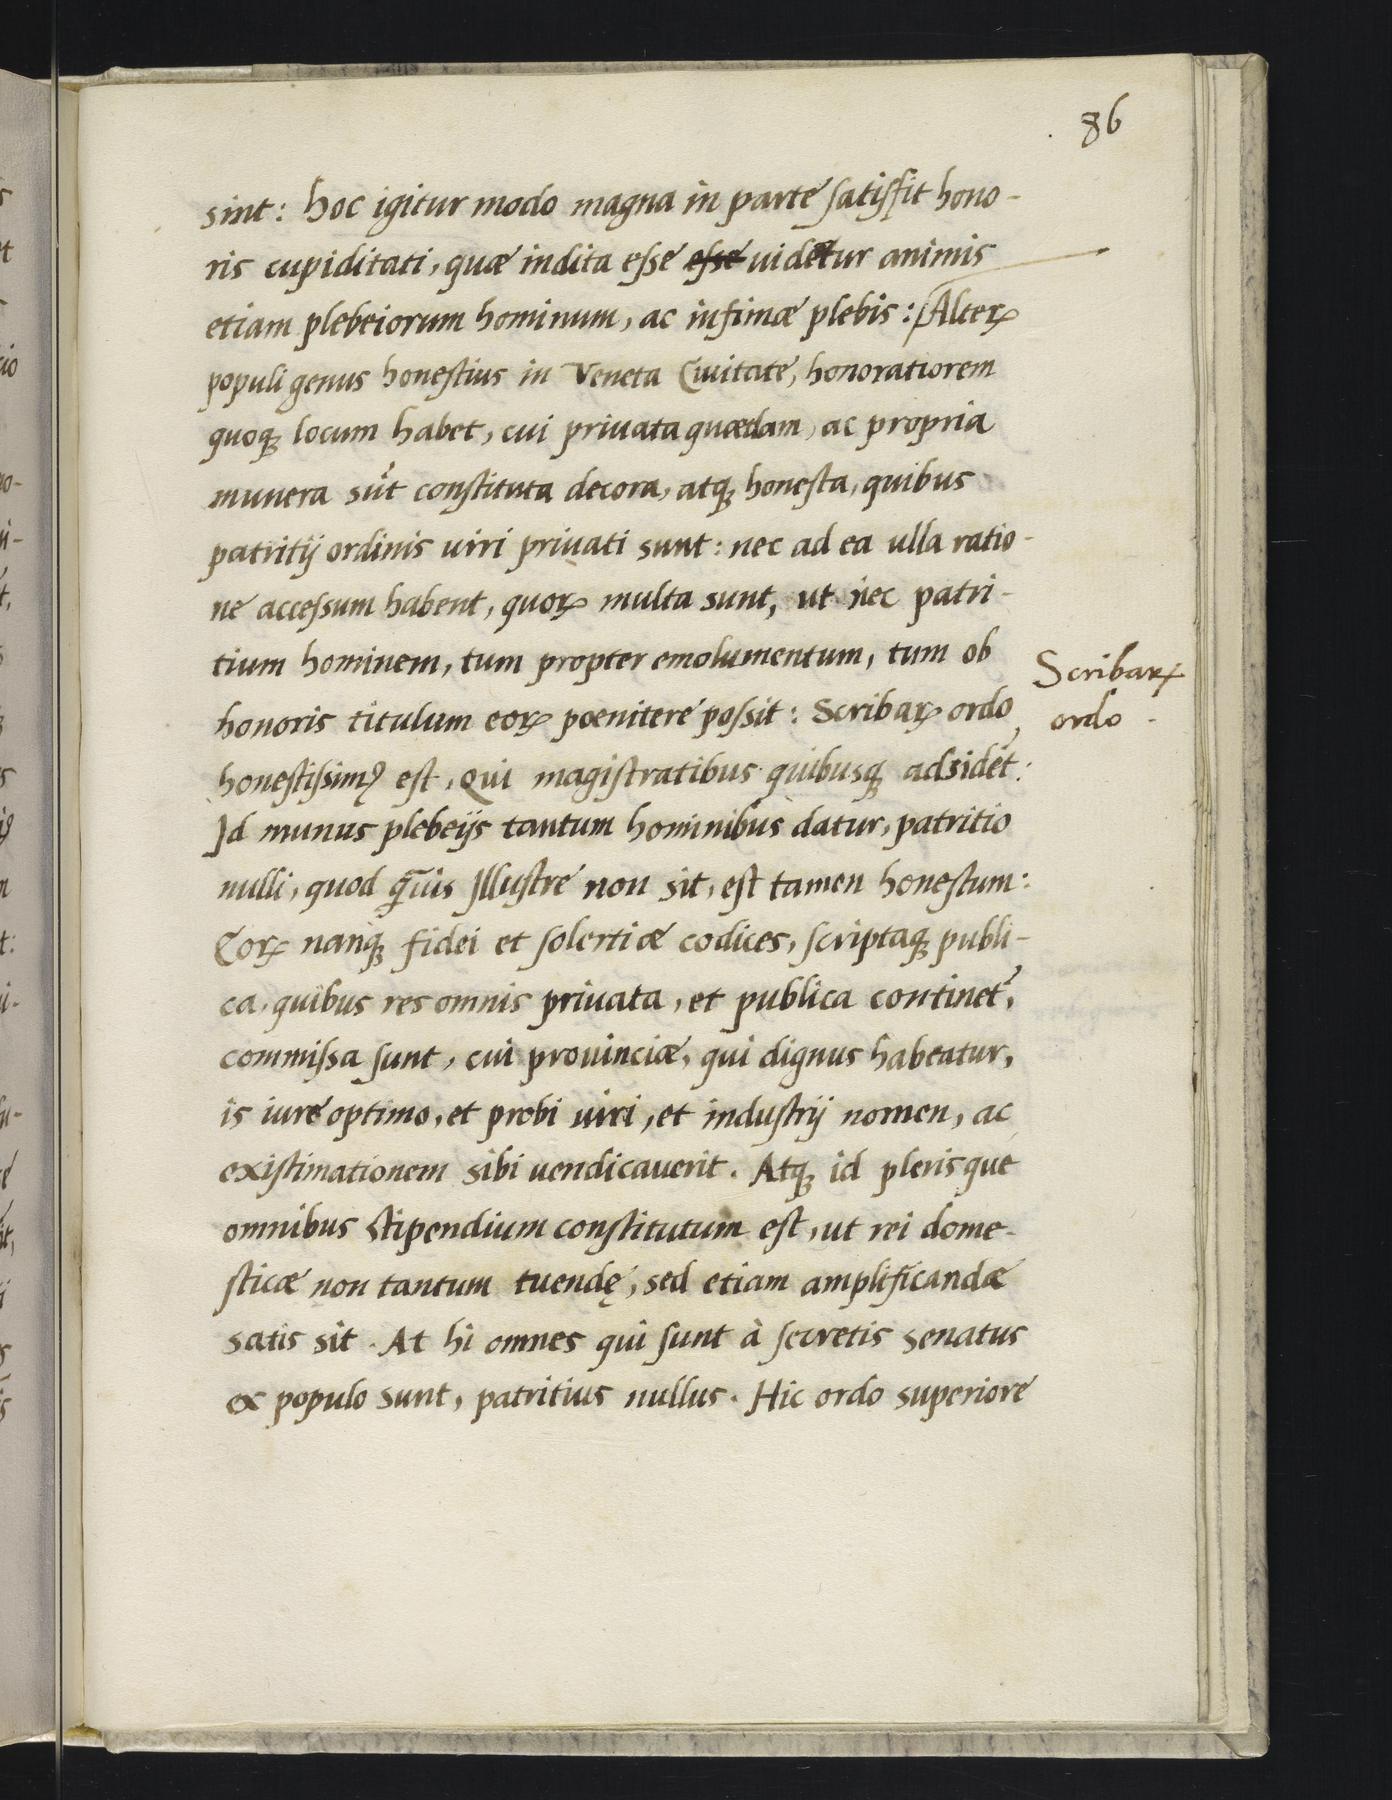 86
sint: hoc igitur modo magna in parte satisfit hono-
ris cupiditati, quæ indita esse esse uidetur animis
etiam plebeiorum hominum, ac infimæ plebis: Alterꝝ
populi genus honestius in Veneta Ciuitate, honoratiorem
quoqꝫ locum habet, cui priuata quædam, ac propria
munera sūt constituta decora, atqꝫ honesta, quibus
patritij ordinis uiri priuati sunt: nec ad ea ulla ratio-
ne accessum habent, quorꝝ multa sunt, ut nec patri-
tium hominem, tum propter emolumentum, tum ob
honoris titulum eorꝝ poenitere possit: Scribarꝝ ordo
Scribarꝝ
ordo
honestissimꝰ est, qui magistratibus quibusqꝫ adsidēt:
Id munus plebeijs tantum hominibus datur, patritio
nulli, quod ꝗ̄uis Illustre non sit, est tamen honestum:
Eorꝝ nanqꝫ fidei et solertiæ codices, scriptaqꝫ publi-
ca, quibus res omnis priuata, et publica continet᷑,
commissa sunt, cui prouinciæ, qui dignus habeatur,
is iure optimo, et probi uiri, et industrij nomen, ac
existimationem sibi uendicauerit. Atqꝫ id plerisque
omnibus stipendium constitutum est, ut rei dome-
sticæ non tantum tuendę, sed etiam amplificandæ
satis sit. At hi omnes qui sunt à secretis senatus
ex populo sunt, patritius nullus. Hic ordo superiore